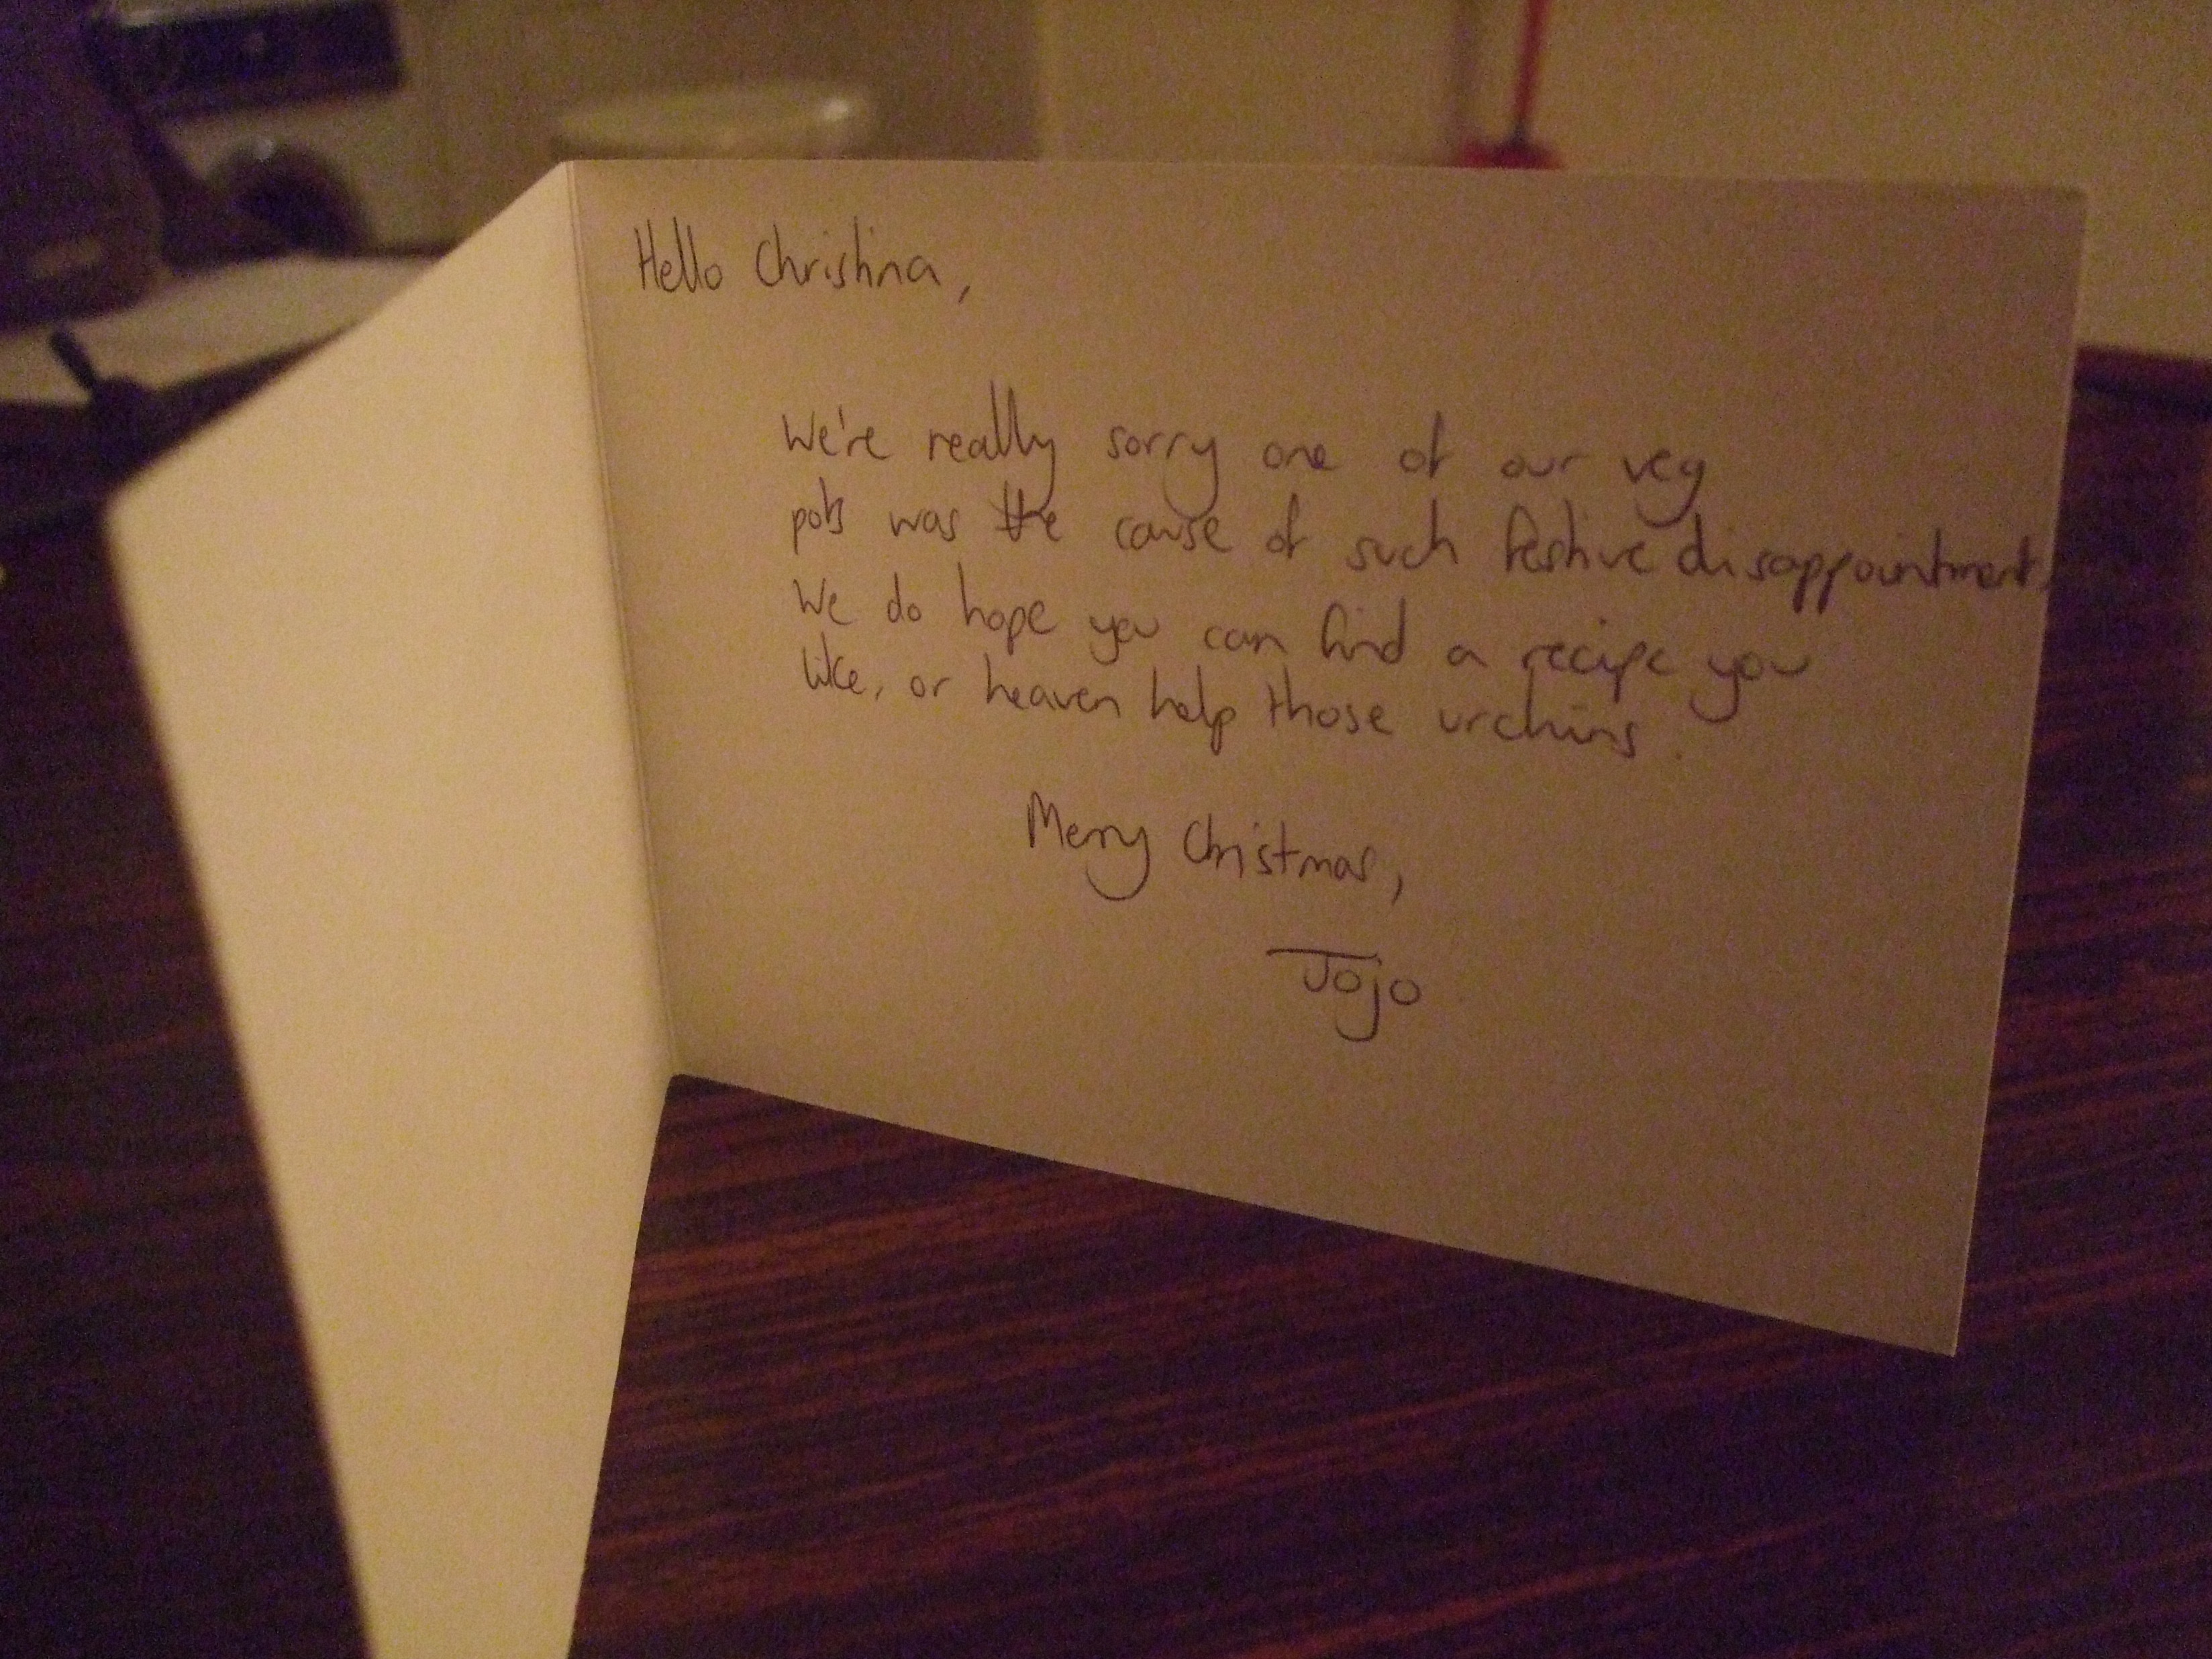 Hello Christina,
We're really sorry one of our veg
pots was the cause of such festive disappointment.
We do hope you can find a recipe you
like, or heaven help those urchins.
Merry Christmas,
Jojo